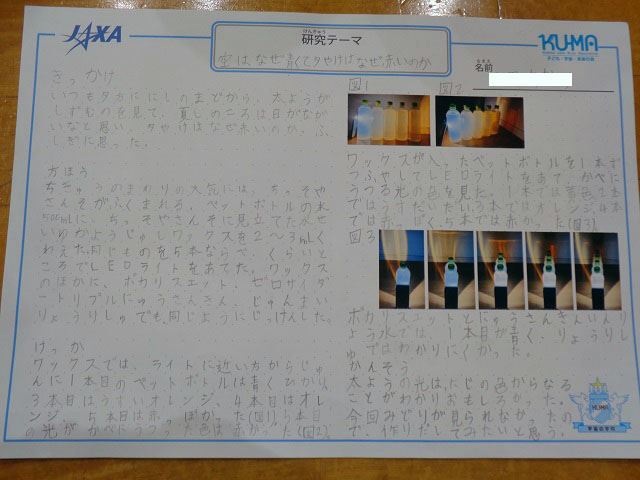 JAXA
けんきゅう
研究テーマ
空は、なぜ青くて夕やけはなぜ赤いのか
KU-MA
子ども・宇宙・未来の会
なまえ
名前
きっかけ
いつも夕方ににしのまどから、太ようが
しずむのを見て、夏しのころは日がなが
いなと思い、夕やけはなぜ赤いのか、ふ
しぎに思った。
方ほう
ちきゅうのまわりの大気には、ちっそや
さんそがふくまれる。ペットボトルの水
500mLに、ちっそやさんそに見立てた水せ
いゆかようじゅしワックスを2〜3mLく
わえた。同じものを5本ならべ、くらいと
ころでLEDライトをあてた。ワックス
のほかに、ポカリスエット、ゼロサイダ
ートリプルにゅうさんきん、じゅんまい
りょうりしゅでも、同じようにじっけんした。
けっか
ワックスでは、ライトに近い方からじゅ
んに1本目のペットボトルは青くひかり、
3本目はうすいオレンジ、4本目はオレ
ンジ、5本目は赤っぽかった(図1)5本目
の光がかべにうつった色は赤かった(図2)
図1
図2
ワックスが入ったペットボトルを1本で
つふやしてLEDライトをあて、かべに
うつる光の色を見た。1本では黄色、2本
ではうすだいだい、3本ではオレンジ、4本
では赤っぽく5本では赤かった(図3)
図3
ポカリスエットとにゅうさんきんいんり
ょう水では、1本目が青く、りょうりし
ゅではわかりにくかった。
かんそう
太ようの光は、にじの色からなる
ことがわかりおもしろかった。
今回みどりが見られなかったの
で、作りだしてみたいと思う。
KU-MA
宇宙の学校